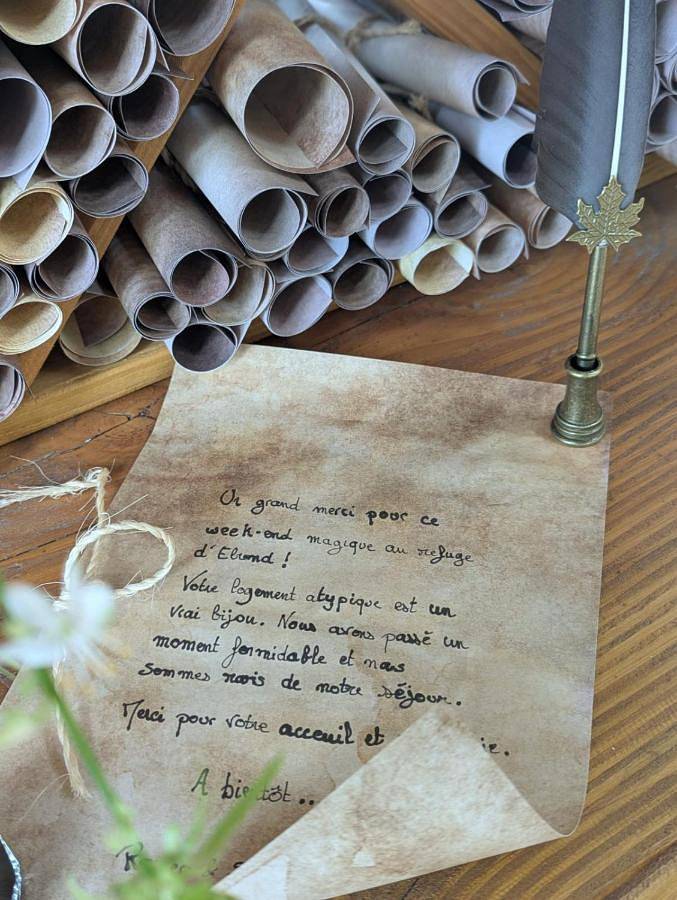 Un grand merci pour ce
week-end magique au refuge
d'Elrond !
Votre logement atypique est un
vrai bijou. Nous avons passé un
moment formidable et nous
sommes ravis de notre séjour.
Merci pour votre acceuil et
A bientôt..